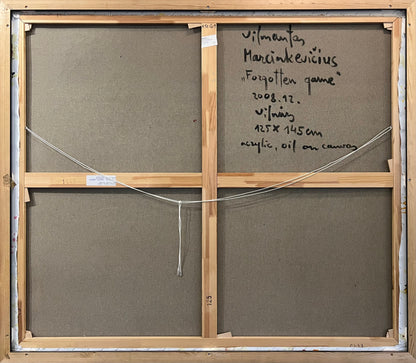 Vilmantas
Marcinkevičius
„Forgotten game“
2008.12.
Vilnius
125 x 145 cm
acrylic, oil on canvas
125